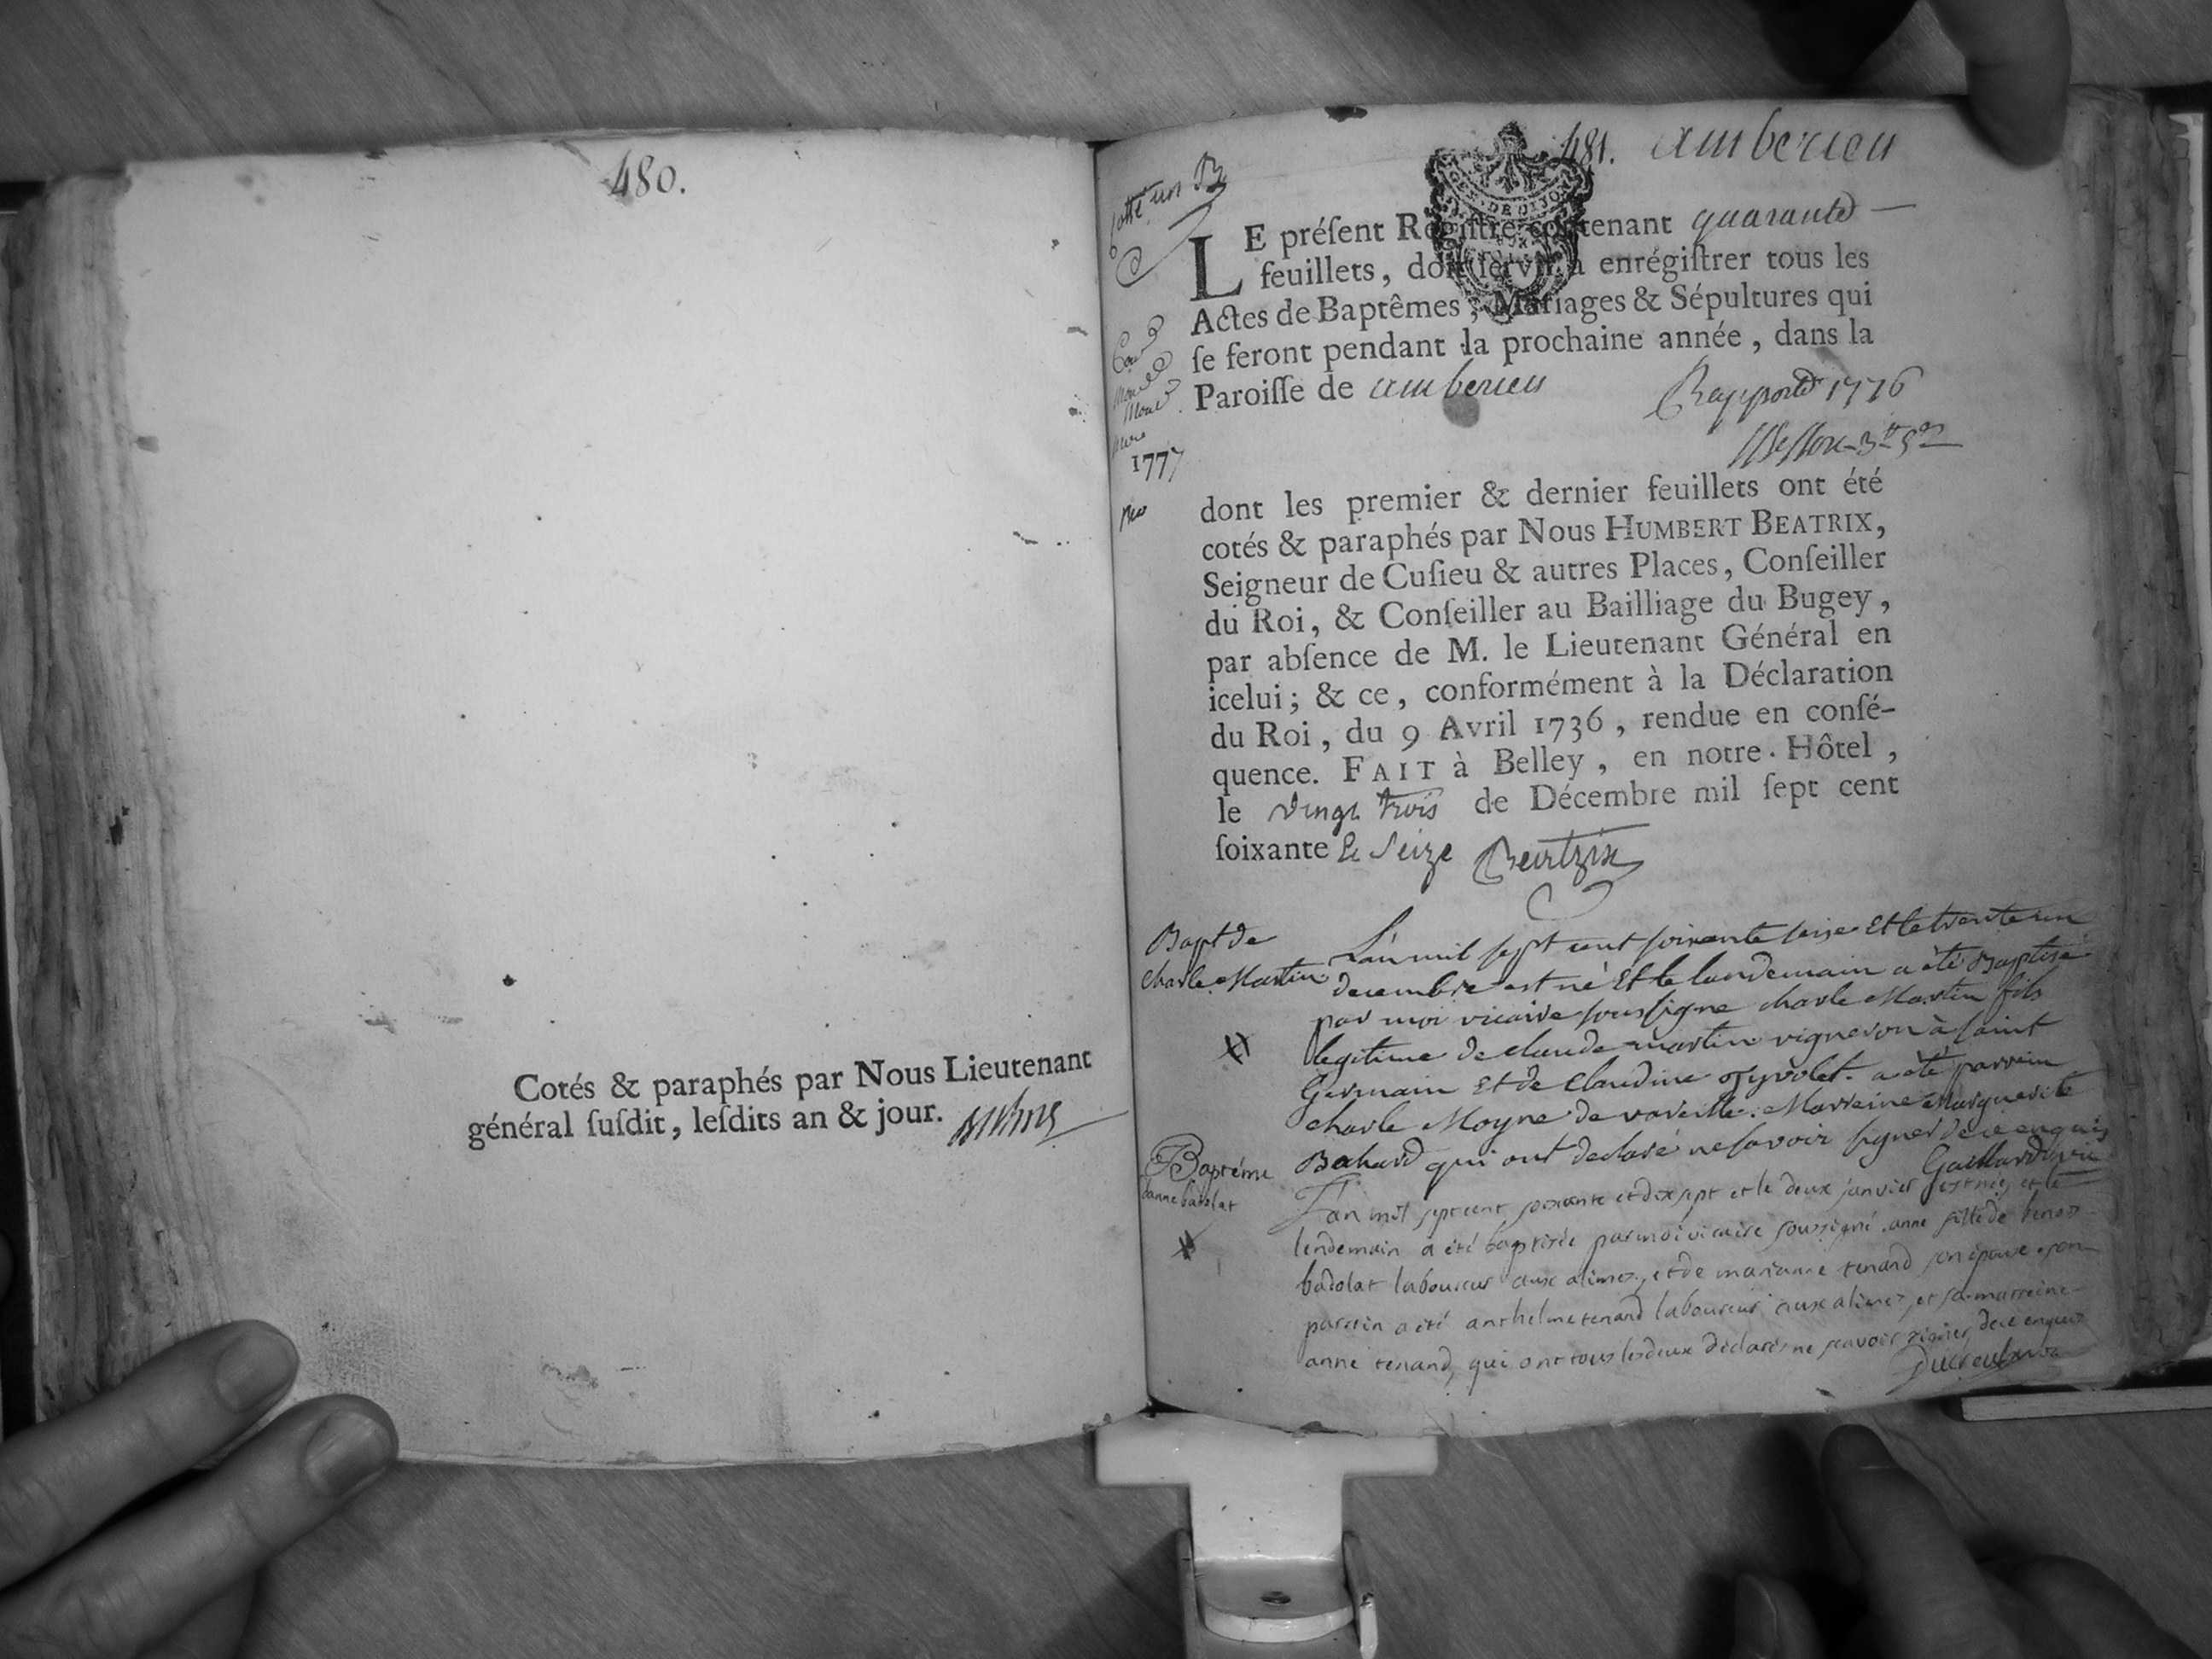 480.
Cotés & paraphés par Nous Lieutenant
général ſuſdit, leſdits an & jour.
481. amberieu
Cotté un B
LE préſent Regiſtre contenant quarante
feuillets, doit ſervir à enrégiſtrer tous les
Actes de Baptêmes, Mariages & Sépultures qui
ſe feront pendant la prochaine année, dans la
Paroiſſe de amberieu
Rapporté 1776
1777
dont les premier & dernier feuillets ont été
cotés & paraphés par Nous HUMBERT BEATRIX,
Seigneur de Cuſieu & autres Places, Conſeiller
du Roi, & Conſeiller au Bailliage du Bugey,
par abſence de M. le Lieutenant Général en
icelui; & ce, conformément à la Déclaration
du Roi, du 9 Avril 1736, rendue en conſé-
quence. FAIT à Belley, en notre Hôtel,
le vingt trois de Décembre mil ſept cent
ſoixante & Seize Beatrix
Bapt de
charle Martin
L'an mil sept cent soixante seise Et le trente un
decembre est né Et le landemain a été Baptisé
par moi vicaire soussigne charle Martin fils
legitime de claude martin vigneron à saint
Germain Et de Claudine oyvolet. a été parrain
charle Moyne de vareille. Marreine Marguerite
Bahard qui ont declaré ne savoir signer de ce enquis
Gaillard vic
Baptême
danne badolat
L'an mil sept cent soixante et dix sept et le deux janvier est née, et le
lendemain a été baptisée par moi vicaire soussigné anne fille de benoit
badolat laboureur aux alimes, et de marianne tenard son épouse. son
parrein a été anthelme tenard laboureur aux alimes, et sa marreine
anne tenard, qui ont tous les deux déclarés ne scavoir signer, de ce enquis